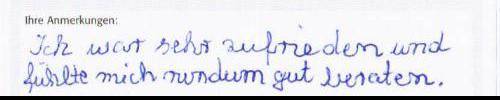 Ihre Anmerkungen:
Ich war sehr zufrieden und
fühlte mich rundum gut beraten.